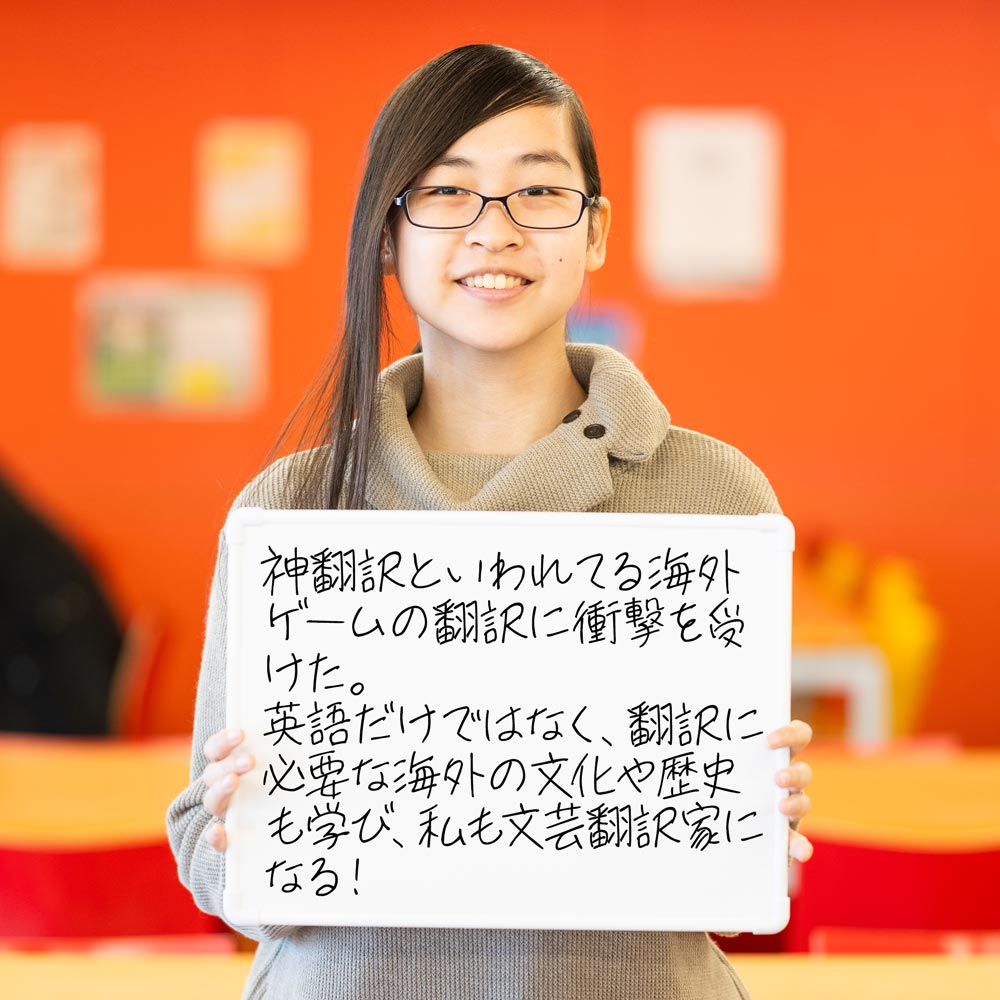 神翻訳といわれてる海外
ゲームの翻訳に衝撃を受
けた。
英語だけではなく、翻訳に
必要な海外の文化や歴史
も学び、私も文芸翻訳家に
なる！